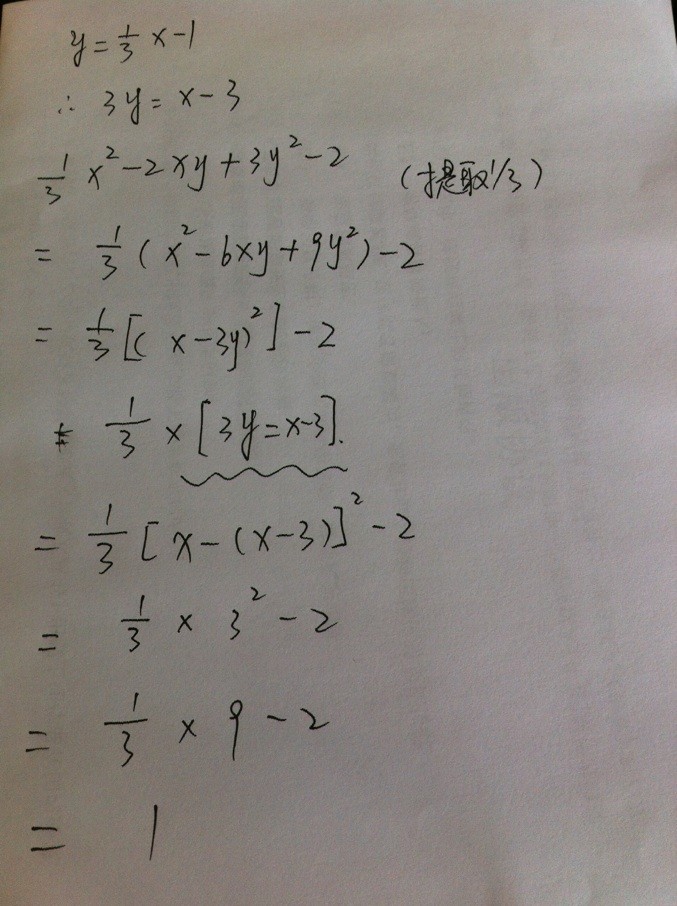 y = 1/3 x - 1
∴ 3y = x - 3
1/3 x² - 2xy + 3y² - 2 (提取1/3)
= 1/3 (x² - 6xy + 9y²) - 2
= 1/3 [(x - 3y)²] - 2
1/3 × [3y = x - 3].
= 1/3 [x - (x - 3)]² - 2
= 1/3 × 3² - 2
= 1/3 × 9 - 2
= 1